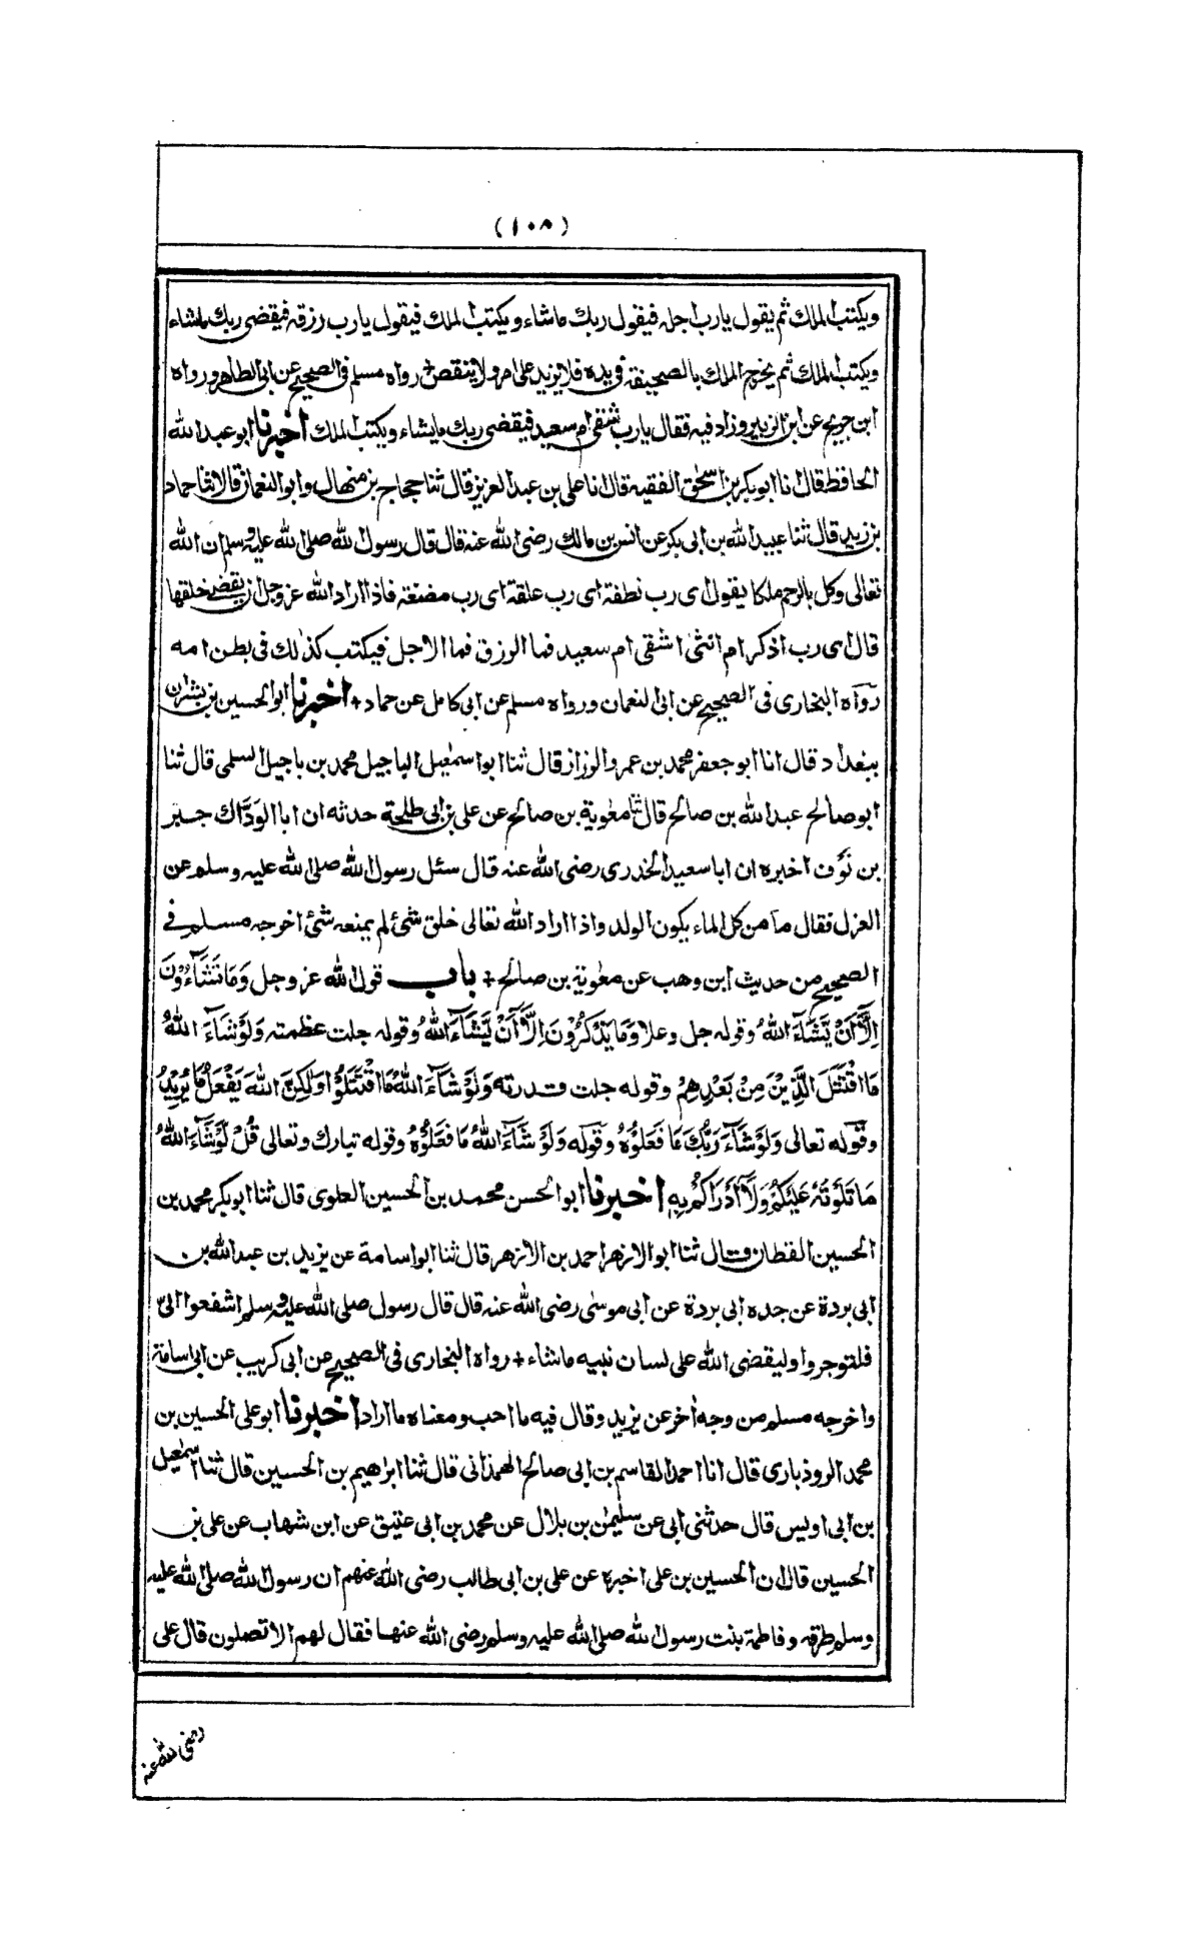 (١٠٨)
ويكتب الملك ثم يقول يا رب اجله فيقول ربك ما شاء ويكتب الملك فيقول يا رب رزقه فيقضى ربك ما شاء
ويكتب الملك ثم يخرج الملك بالصحيفة فى يده فلا يزيد على امر ولا ينقص + رواه مسلم فى الصحيح عن ابى الطاهر ورواه
ابن جريج عن ابى الزبير وزاد فيه فقال يا رب شقى ام سعيد فيقضى ربك ما يشاء ويكتب الملك اخبرنا ابو عبد الله
الحافظ قال انا ابو بكر بن اسحٰق الفقيه قال انا على بن عبد العزيز قال ثنا حجاج بن منهال وابو النعمان قالا ثنا حماد
بن زيد قال ثنا عبيد الله بن ابى بكر عن انس بن مالك رضى الله عنه قال قال رسول الله صلى الله عليه وسلم ان الله
تعالى وكل بالرحم ملكا يقول اى رب نطفة اى رب علقة اى رب مضغة فاذا اراد الله عز وجل ان يقضى خلقها
قال اى رب اذكر ام انثىٰ اشقى ام سعيد فما الرزق فما الاجل فيكتب كذٰلك فى بطن امه
رواه البخارى فى الصحيح عن ابى النعمان ورواه مسلم عن ابى كامل عن حماد + اخبرنا ابو الحسين بن بشران
ببغداد قال انا ابو جعفر محمد بن عمرو الرزاز قال ثنا ابو اسمٰعيل الباجيل محمد بن باجيل السلمى قال ثنا
ابو صالح عبد الله بن صالح قال ثنا معٰوية بن صالح عن على بن ابى طلحة حدثه ان ابا الوَدَّاك جبر
بن نَوْف اخبره ان ابا سعيد الخدرى رضى الله عنه قال سئل رسول الله صلى الله عليه وسلم عن
العزل فقال ما من كل الماء يكون الولد واذا اراد الله تعالى خلق شئ لم يمنعه شئ اخرجه مسلم فى
الصحيح من حديث ابن وهب عن معٰوية بن صالح + باب قول الله عز وجل وَمَا تَشَآءُوْنَ
اِلَّآ اَنْ يَّشَآءَ اللهُ وقوله جل وعلا وَمَا يَذْكُرُوْنَ اِلَّآ اَنْ يَّشَآءَ اللهُ وقوله جلت عظمته وَلَوْ شَآءَ اللهُ
مَا اقْتَتَلَ الَّذِيْنَ مِنْ بَعْدِهِمْ وقوله جلت قدرته وَلَوْ شَآءَ اللهُ مَا اقْتَتَلُوْا وَلٰكِنَّ اللهَ يَفْعَلُ مَا يُرِيْدُ
وقوله تعالى وَلَوْ شَآءَ رَبُّكَ مَا فَعَلُوْهُ وقوله وَلَوْ شَآءَ اللهُ مَا فَعَلُوْهُ وقوله تبارك وتعالى قُلْ لَّوْ شَآءَ اللهُ
مَا تَلَوْتُهٗ عَلَيْكُمْ وَلَآ اَدْرَاكُمْ بِهٖ اخبرنا ابو الحسن محمد بن الحسين العلوى قال ثنا ابو بكر محمد بن
الحسين القطان قال ثنا ابو الازهر احمد بن الازهر قال ثنا ابو اسامة عن يزيد بن عبد الله بن
ابى بردة عن جده ابى بردة عن ابى موسىٰ رضى الله عنه قال قال رسول صلى الله عليه وسلم اشفعوا الىّ
فلتوجروا وليقضى الله على لسان نبيه ما شاء + رواه البخارى فى الصحيح عن ابى كريب عن ابى اسامة
واخرجه مسلم من وجه اٰخر عن يزيد وقال فيه ما احب ومعناه ما اراد اخبرنا ابو على الحسين بن
محمد الروذبارى قال انا احمد القاسم بن ابى صالح الهمذانى قال ثنا ابرٰهيم بن الحسين قال ثنا اسمٰعيل
بن ابى اويس قال حدثنى ابى عن سليمٰن بن بلال عن محمد بن ابى عتيق عن ابن شهاب عن على بن
الحسين قال ان الحسين بن على اخبره عن على بن ابى طالب رضى الله عنهم ان رسول الله صلى الله عليه
وسلم طرقه وفاطمة بنت رسول الله صلى الله عليه وسلم رضى الله عنها فقال لهم الا تصلون قال على
رضى الله عنه